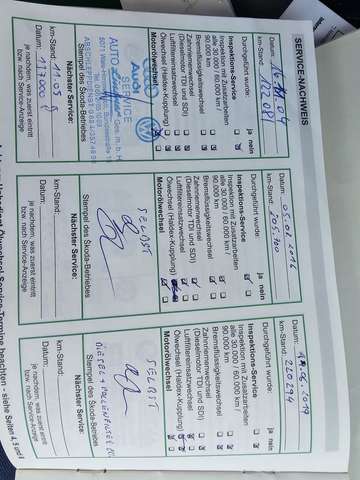 SERVICE-NACHWEIS
Datum:
km-Stand:
Durchgeführt wurde: ja nein
Inspektions-Service
Inspektion mit Zusatzarbeiten
alle 30 000 / 60 000 /
90 000 km
Bremsflüssigkeitswechsel
Zahnriemenwechsel
(Dieselmotor TDI und SDI)
Luftfiltereinsatzwechsel
Ölwechsel (Haldex-Kupplung)
Motorölwechsel
SERVICE
Audi
AUTO
Stempel des Škoda-Betriebes
Nächster Service:
km-Stand:
Datum:
je nachdem, was zuerst eintritt
bzw. nach Service-Anzeige
Datum: 05.01.2016
km-Stand: 205.700
Durchgeführt wurde: ja nein
Inspektions-Service
Inspektion mit Zusatzarbeiten
alle 30 000 / 60 000 /
90 000 km
Bremsflüssigkeitswechsel
Zahnriemenwechsel
(Dieselmotor TDI und SDI)
Luftfiltereinsatzwechsel
Ölwechsel (Haldex-Kupplung)
Motorölwechsel
SELBST
Stempel des Škoda-Betriebes
Nächster Service:
km-Stand:
Datum:
je nachdem, was zuerst eintritt
bzw. nach Service-Anzeige
Datum:
km-Stand:
Durchgeführt wurde: ja nein
Inspektions-Service
Inspektion mit Zusatzarbeiten
alle 30 000 / 60 000 /
90 000 km
Bremsflüssigkeitswechsel
Zahnriemenwechsel
(Dieselmotor TDI und SDI)
Luftfiltereinsatzwechsel
Ölwechsel (Haldex-Kupplung)
Motorölwechsel
SELBST
Stempel des Škoda-Betriebes
Nächster Service:
km-Stand:
Datum:
je nachdem, was zuerst eintritt
bzw. nach Service-Anzeige
Ölwechsel Service-Termine beachten - siehe Seiten 4, 5 und